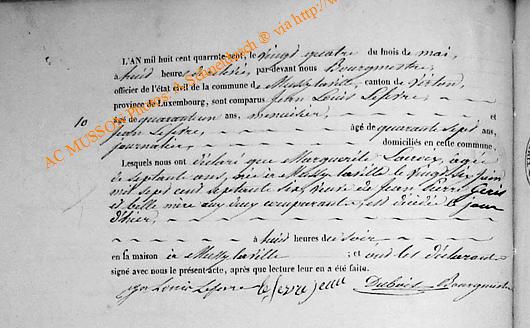 L'AN mil huit cent quarante-sept, le vingt quatre du mois de mai,
à huit heures du matin, par-devant nous Bourgmestre,
officier de l'état civil de la commune de Mussy la ville, canton de Virton,
province de Luxembourg, sont comparus Jean Louis Lefevre,
âgé de quarante un ans, menuisier, et
10
Jean Lefevre, âgé de quarante sept ans,
journalier, domiciliés en cette commune,
Lesquels nous ont déclaré que Marguerite Lacroix, âgée
de septante ans, née à Mussy la ville le vingt six juin
mil sept cent septante six, veuve de Jean Pierre
et belle mère aux deux comparants, est décédée le jour
d'hier,
à huit heures du soir
en sa maison à Mussy la ville ; et ont les déclarants
signé avec nous le présent acte, après que lecture leur en a été faite.
Jean Louis Lefevre lefevre jean Dubois Bourgmestre
AC MUSSON Photos: A. Schnettbach ® via http://w